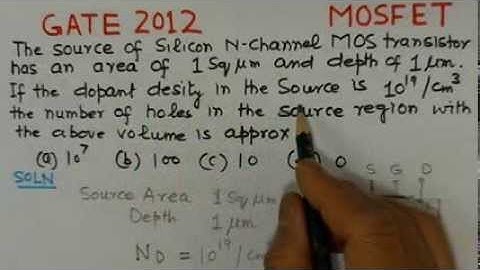 GATE 2012 MOSFET
The source of Silicon N-Channel MOS transistor
has an area of 1 Sq μm and depth of 1 μm.
If the dopant desity in the Source is 10¹⁹/cm³
the number of holes in the source region with
the above volume is approx
(a) 10⁷ (b) 100 (c) 10 0
SOLN
S G D
Source Area 1 Sq μm
Depth 1 μm
N_D = 10¹⁹/cm